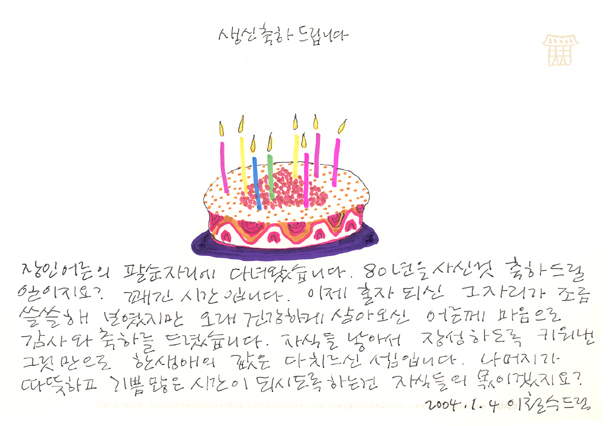 생신 축하 드립니다
장인어른의 팔순자리에 다녀왔습니다. 80년을 사신것 축하드릴
일이지요? 꽤 긴 시간입니다. 이제 혼자 되신 그 자리가 조금
쓸쓸해 보였지만 오래 건강하게 살아오신 어른께 마음으로
감사와 축하를 드렸습니다. 자식들 낳아서 장성하도록 키워낸
그것만으로 한생애의 값은 다 치르신 셈입니다. 나머지가
따뜻하고 기쁨 많은 시간이 되시도록 하는건 자식들의 몫이겠지요?
2004.1.4 이철수드림